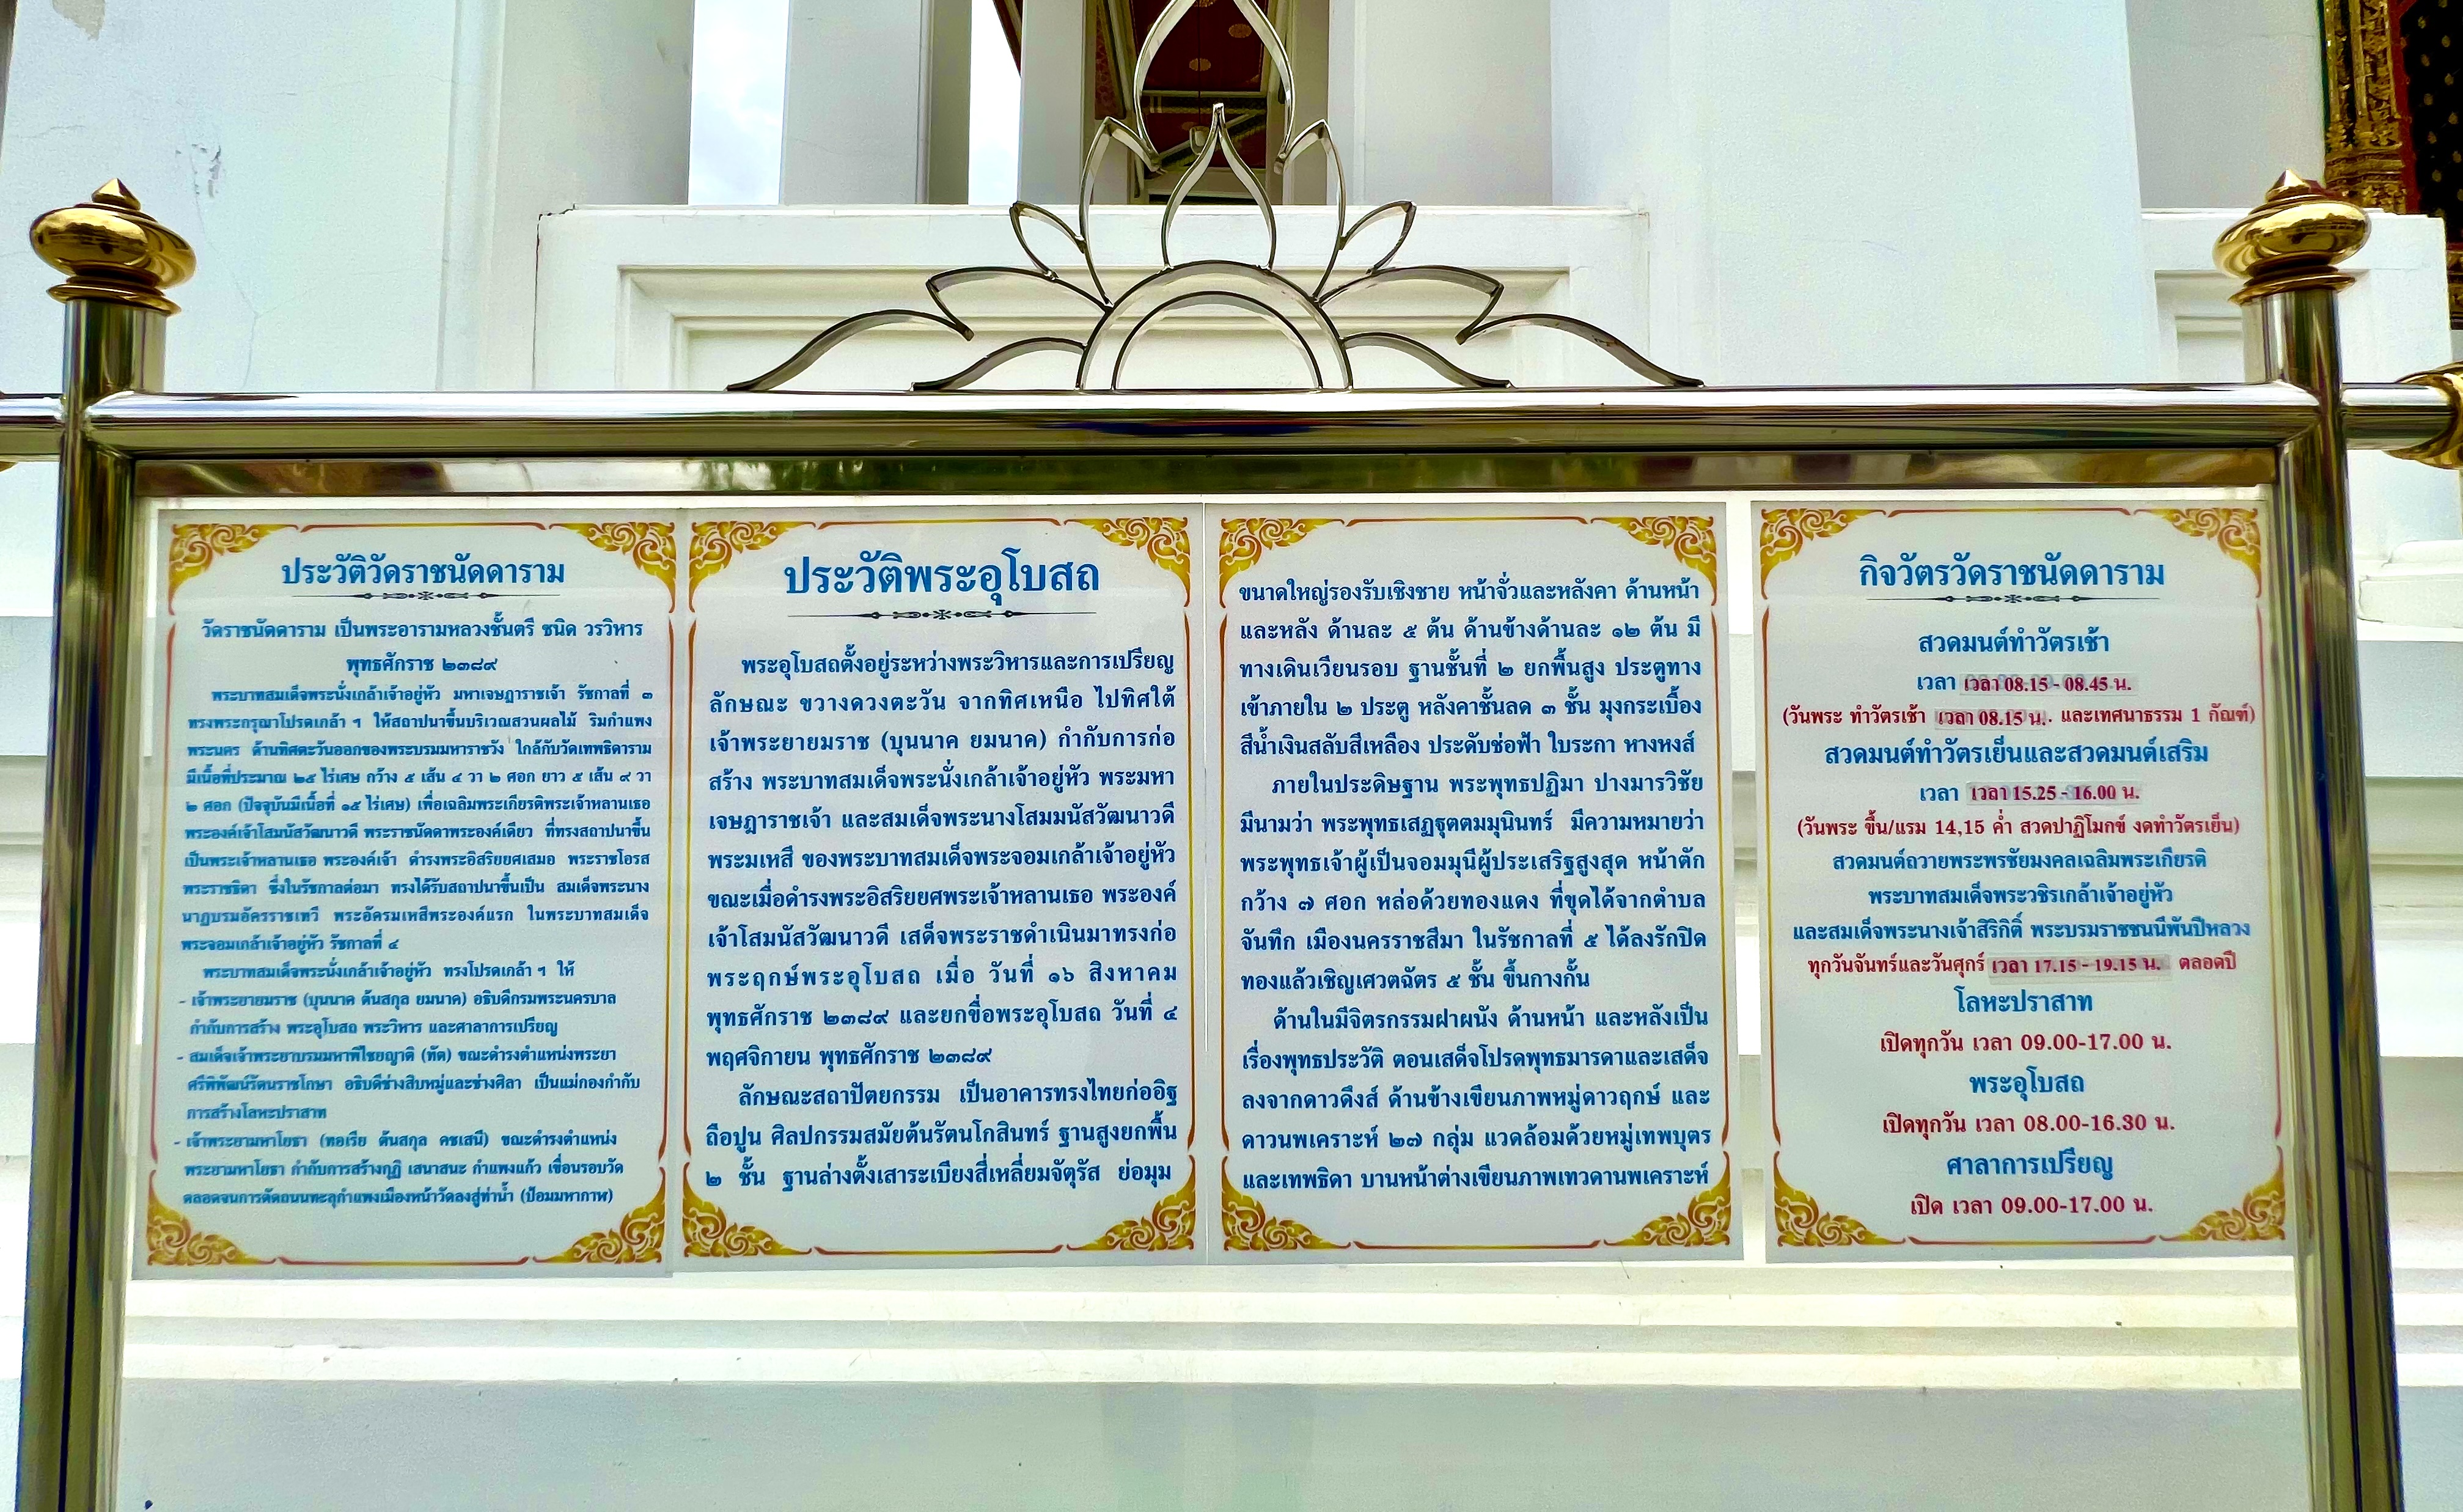 ประวัติวัดราชนัดดาราม
วัดราชนัดดาราม เป็นพระอารามหลวงชั้นตรี ชนิด วรวิหาร
พุทธศักราช ๒๓๘๙
พระบาทสมเด็จพระนั่งเกล้าเจ้าอยู่หัว มหาเจษฎาราชเจ้า รัชกาลที่ ๓
ทรงพระกรุณาโปรดเกล้า ฯ ให้สถาปนาขึ้นบริเวณสวนผลไม้ ริมกำแพง
พระนคร ด้านทิศตะวันออกของพระบรมมหาราชวัง ใกล้กับวัดเทพธิดาราม
มีเนื้อที่ประมาณ ๒๕ ไร่เศษ กว้าง ๕ เส้น ๔ วา ๒ ศอก ยาว ๕ เส้น ๙ วา
๒ ศอก (ปัจจุบันมีเนื้อที่ ๑๕ ไร่เศษ) เพื่อเฉลิมพระเกียรติพระเจ้าหลานเธอ
พระองค์เจ้าโสมนัสวัฒนาวดี พระราชนัดดาพระองค์เดียว ที่ทรงสถาปนาขึ้น
เป็นพระเจ้าหลานเธอ พระองค์เจ้า ดำรงพระอิสริยยศเสมอ พระราชโอรส
พระราชธิดา ซึ่งในรัชกาลต่อมา ทรงได้รับสถาปนาขึ้นเป็น สมเด็จพระนาง
นาฏบรมอัครราชเทวี พระอัครมเหสีพระองค์แรก ในพระบาทสมเด็จ
พระจอมเกล้าเจ้าอยู่หัว รัชกาลที่ ๔
พระบาทสมเด็จพระนั่งเกล้าเจ้าอยู่หัว ทรงโปรดเกล้า ฯ ให้
- เจ้าพระยายมราช (บุนนาค ต้นสกุล ยมนาค) อธิบดีกรมพระนครบาล
กำกับการสร้าง พระอุโบสถ พระวิหาร และศาลาการเปรียญ
- สมเด็จเจ้าพระยาบรมมหาพิไชยญาติ (ทัต) ขณะดำรงตำแหน่งพระยา
ศรีพิพัฒน์รัตนราชโกษา อธิบดีช่างสิบหมู่และช่างศิลา เป็นแม่กองกำกับ
การสร้างโลหะปราสาท
- เจ้าพระยามหาโยธา (ทอเรีย ต้นสกุล คชเสนี) ขณะดำรงตำแหน่ง
พระยามหาโยธา กำกับการสร้างกุฏิ เสนาสนะ กำแพงแก้ว เขื่อนรอบวัด
ตลอดจนการตัดถนนทะลุกำแพงเมืองหน้าวัดลงสู่ท่าน้ำ (ป้อมมหากาฬ)
ประวัติพระอุโบสถ
พระอุโบสถตั้งอยู่ระหว่างพระวิหารและการเปรียญ
ลักษณะ ขวางดวงตะวัน จากทิศเหนือ ไปทิศใต้
เจ้าพระยายมราช (บุนนาค ยมนาค) กำกับการก่อ
สร้าง พระบาทสมเด็จพระนั่งเกล้าเจ้าอยู่หัว พระมหา
เจษฎาราชเจ้า และสมเด็จพระนางโสมมนัสวัฒนาวดี
พระมเหสี ของพระบาทสมเด็จพระจอมเกล้าเจ้าอยู่หัว
ขณะเมื่อดำรงพระอิสริยยศพระเจ้าหลานเธอ พระองค์
เจ้าโสมนัสวัฒนาวดี เสด็จพระราชดำเนินมาทรงก่อ
พระฤกษ์พระอุโบสถ เมื่อ วันที่ ๑๖ สิงหาคม
พุทธศักราช ๒๓๘๙ และยกขื่อพระอุโบสถ วันที่ ๔
พฤศจิกายน พุทธศักราช ๒๓๘๙
ลักษณะสถาปัตยกรรม เป็นอาคารทรงไทยก่ออิฐ
ถือปูน ศิลปกรรมสมัยต้นรัตนโกสินทร์ ฐานสูงยกพื้น
๒ ชั้น ฐานล่างตั้งเสาระเบียงสี่เหลี่ยมจัตุรัส ย่อมุม
ขนาดใหญ่รองรับเชิงชาย หน้าจั่วและหลังคา ด้านหน้า
และหลัง ด้านละ ๕ ต้น ด้านข้างด้านละ ๑๒ ต้น มี
ทางเดินเวียนรอบ ฐานชั้นที่ ๒ ยกพื้นสูง ประตูทาง
เข้าภายใน ๒ ประตู หลังคาชั้นลด ๓ ชั้น มุงกระเบื้อง
สีน้ำเงินสลับสีเหลือง ประดับช่อฟ้า ใบระกา หางหงส์
ภายในประดิษฐาน พระพุทธปฏิมา ปางมารวิชัย
มีนามว่า พระพุทธเสฏฐุตตมมุนินทร์ มีความหมายว่า
พระพุทธเจ้าผู้เป็นจอมมุนีผู้ประเสริฐสูงสุด หน้าตัก
กว้าง ๗ ศอก หล่อด้วยทองแดง ที่ขุดได้จากตำบล
จันทึก เมืองนครราชสีมา ในรัชกาลที่ ๕ ได้ลงรักปิด
ทองแล้วเชิญเศวตฉัตร ๕ ชั้น ขึ้นกางกั้น
ด้านในมีจิตรกรรมฝาผนัง ด้านหน้า และหลังเป็น
เรื่องพุทธประวัติ ตอนเสด็จโปรดพุทธมารดาและเสด็จ
ลงจากดาวดึงส์ ด้านข้างเขียนภาพหมู่ดาวฤกษ์ และ
ดาวนพเคราะห์ ๒๗ กลุ่ม แวดล้อมด้วยหมู่เทพบุตร
และเทพธิดา บานหน้าต่างเขียนภาพเทวดานพเคราะห์
กิจวัตรวัดราชนัดดาราม
สวดมนต์ทำวัตรเช้า
เวลา เวลา 08.15 - 08.45 น.
(วันพระ ทำวัตรเช้า เวลา 08.15 น.. และเทศนาธรรม 1 กัณฑ์)
สวดมนต์ทำวัตรเย็นและสวดมนต์เสริม
เวลา เวลา 15.25 - 16.00 น.
(วันพระ ขึ้น/แรม 14,15 ค่ำ สวดปาฏิโมกข์ งดทำวัตรเย็น)
สวดมนต์ถวายพระพรชัยมงคลเฉลิมพระเกียรติ
พระบาทสมเด็จพระวชิรเกล้าเจ้าอยู่หัว
และสมเด็จพระนางเจ้าสิริกิติ์ พระบรมราชชนนีพันปีหลวง
ทุกวันจันทร์และวันศุกร์ เวลา 17.15 - 19.15 น. ตลอดปี
โลหะปราสาท
เปิดทุกวัน เวลา 09.00-17.00 น.
พระอุโบสถ
เปิดทุกวัน เวลา 08.00-16.30 น.
ศาลาการเปรียญ
เปิด เวลา 09.00-17.00 น.